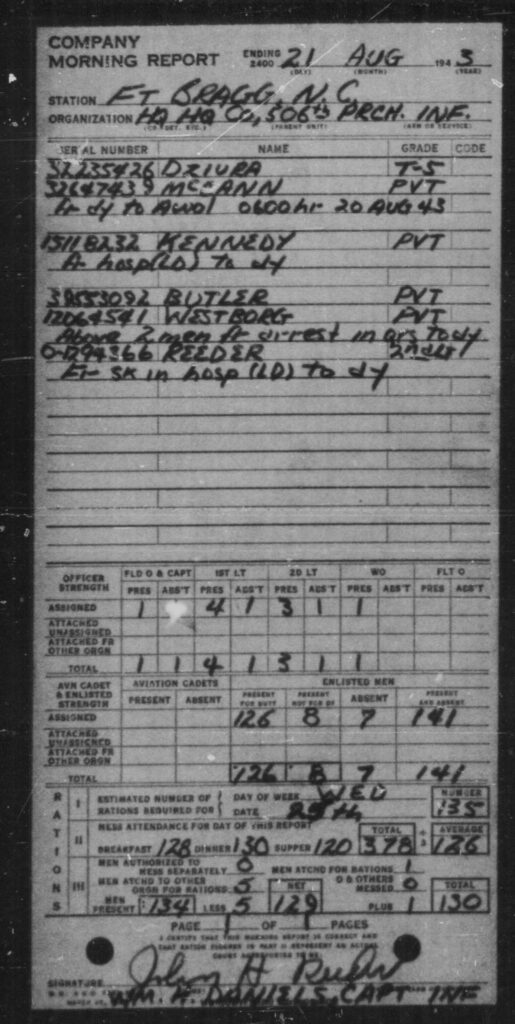 COMPANY
MORNING REPORT ENDING 2400 21 AUG 1943
(DAY) (MONTH) (YEAR)
STATION FT BRAGG, N.C.
ORGANIZATION HQ HQ Co, 506th PRCH. INF.
(PARENT UNIT) (ARM OR SERVICE)
SERIAL NUMBER NAME GRADE CODE
32235426 DZIURA T-5
32647439 McCANN PVT
fr dy to AWOL 0600 hr 20 AUG 43
15118232 KENNEDY PVT
fr hosp (LD) to dy
39553092 BUTLER PVT
12064541 WESTBORG PVT
Above 2 men fr arrest in qrs to dy
0-1294366 REEDER 2nd Lt
Fr sk in hosp (LD) to dy
OFFICER STRENGTH FLD O & CAPT 1ST LT 2D LT WO FLT O
PRES ABS'T PRES ABS'T PRES ABS'T PRES ABS'T PRES ABS'T
ASSIGNED 1 4 1 3 1 1
ATTACHED UNASSIGNED
ATTACHED FR OTHER ORGN
TOTAL 1 1 4 1 3 1 1
AVN CADET & ENLISTED STRENGTH AVIATION CADETS ENLISTED MEN
PRESENT ABSENT PRESENT FOR DUTY PRESENT NOT FOR DY ABSENT PRESENT AND ABSENT
ASSIGNED 126 8 7 141
ATTACHED UNASSIGNED
ATTACHED FR OTHER ORGN
TOTAL 126 8 7 141
RATIONS
I ESTIMATED NUMBER OF RATIONS REQUIRED FOR DAY OF WEEK WED NUMBER
DATE 25th 135
II MESS ATTENDANCE FOR DAY OF THIS REPORT TOTAL ÷3 AVERAGE
BREAKFAST 128 DINNER 130 SUPPER 120 378 126
III MEN AUTHORIZED TO MESS SEPARATELY 0 MEN ATCHD FOR RATIONS 1
MEN ATCHD TO OTHER ORGN FOR RATIONS 5 NET O & OTHERS MESSED 0 TOTAL
MEN PRESENT 134 LESS 5 129 PLUS 1 130
PAGE 1 OF 1 PAGES
I CERTIFY THAT THIS MORNING REPORT IS CORRECT AND
THAT RATION FIGURES IN PART II REPRESENT AN ACTUAL
SIGNATURE John H Reeder
WM. H. DANIELS, CAPT INF